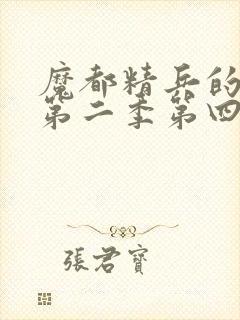 魔都精兵的
第二季第四
張君寶